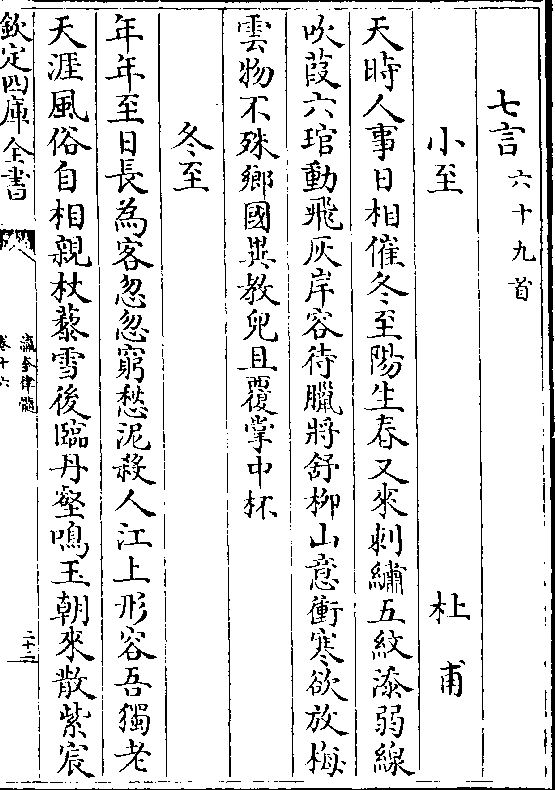 七言六十九首
小至 杜甫
天時人事日相催冬至陽生春又來刺繡五紋添弱線
吹葭六琯動飛灰岸容待臘將舒柳山意衝寒欲放梅
雲物不殊鄉國異教兒且覆掌中杯
冬至
年年至日長為客忽忽窮愁泥殺人江上形容吾獨老
天涯風俗自相親杖藜雪後臨丹壑鳴玉朝來散紫宸
欽定四庫全書
瀛奎律髓
卷十六
二十二